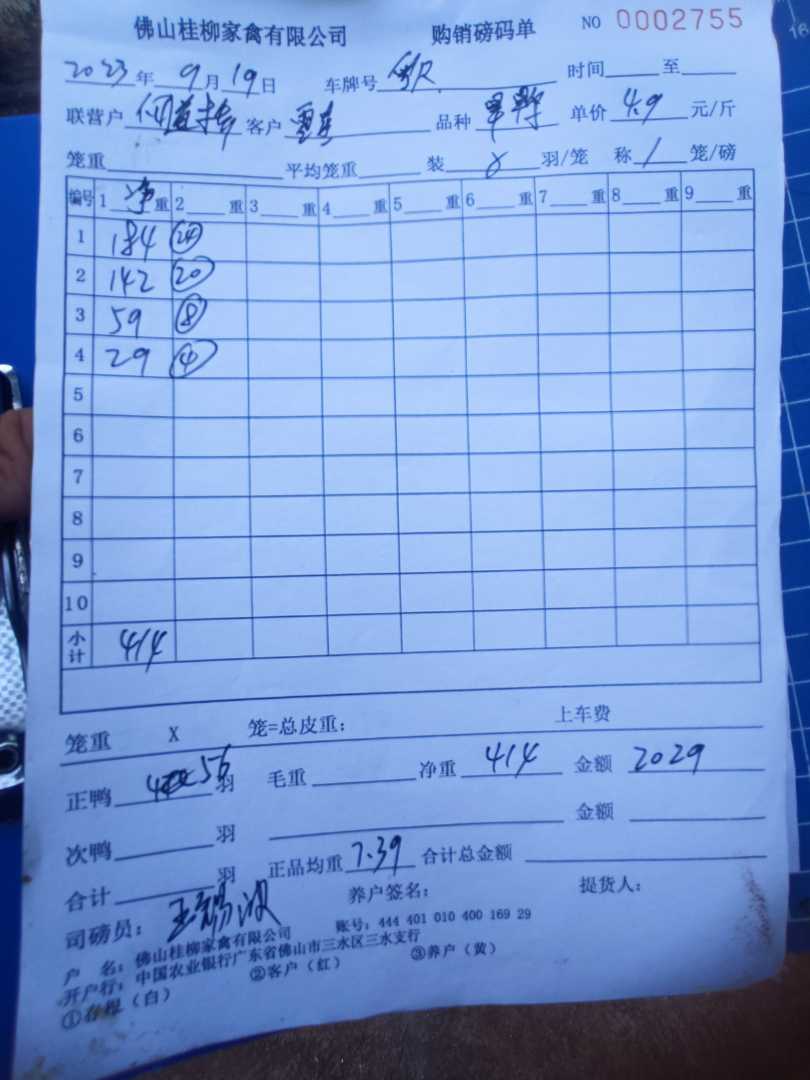 佛山桂柳家禽有限公司 购销磅码单 NO 0002755
2023年 9月19日 车牌号 时间 至
联营户 何 客户 品种 单价 4.9 元/斤
笼重 平均笼重 装 8 羽/笼 称 1 笼/磅
编号 1 净 重 2 重 3 重 4 重 5 重 6 重 7 重 8 重 9 重
1 184 24
2 142 20
3 59 8
4 29 4
5
6
7
8
9
10
小计 414
笼重 X 笼=总皮重: 上车费
正鸭 56 羽 毛重 净重 414 金额 2029
次鸭 羽 金额
合计 羽 正品均重 7.39 合计总金额
司磅员: 王锡波 养户签名: 提货人:
户 名: 佛山桂柳家禽有限公司 账号: 444 401 010 400 169 29
开户行: 中国农业银行广东省佛山市三水区三水支行
①存根(白) ②客户(红) ③养户(黄)
16